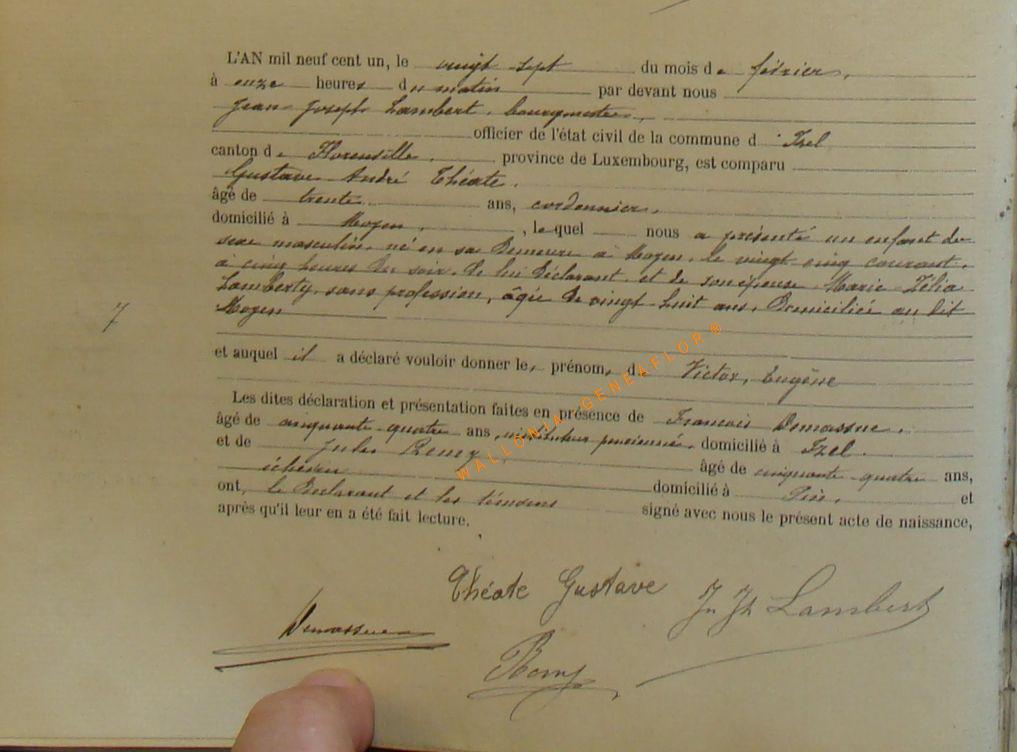 L'AN mil neuf cent un, le vingt sept du mois de février,
à onze heures du matin par devant nous
Jean Joseph Lambert, bourgmestre,
officier de l'état civil de la commune d'Izel
canton de Florenville, province de Luxembourg, est comparu
Gustave André Théate,
âgé de trente ans, cordonnier,
domicilié à Moyen, lequel nous a présenté un enfant de
sexe masculin, né en sa demeure à Moyen, le vingt cinq courant,
à cinq heures du soir, de lui déclarant, et de son épouse Marie Zélia
Lamberty, sans profession, âgée de vingt huit ans, domiciliée au dit
Moyen
7
et auquel il a déclaré vouloir donner les prénoms de Victor, Eugène
Les dites déclaration et présentation faites en présence de François Demassue,
âgé de cinquante quatre ans, instituteur pensionné, domicilié à Izel
et de Jules Remy
échevin âgé de cinquante quatre ans,
domicilié à et
ont, le déclarant et les témoins signé avec nous le présent acte de naissance,
après qu'il leur en a été fait lecture.
Théate Gustave
Jn Jh Lambert
Demassue
Remy
WALLONIA-GENEAFLOR®